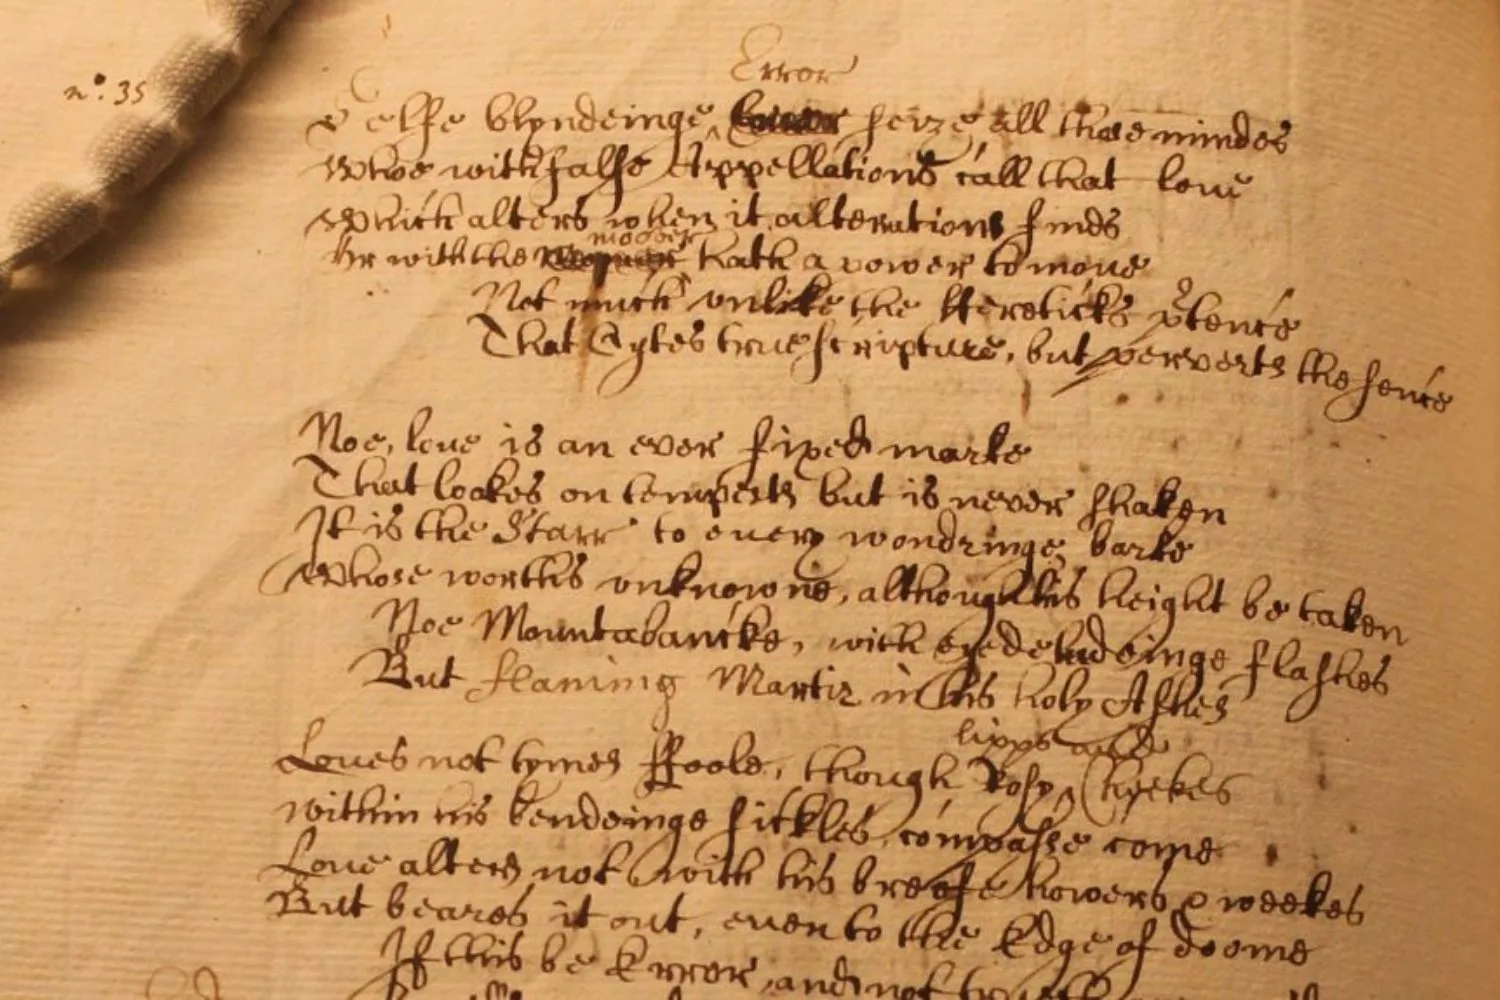 Error
n°. 35
Selfe blyndeinge seize all those mindes
Whoe with false Appellations call that loue
Which alters when it alterations finds
moover
Or with the hath a power to moue
Not much vnlike the Hereticks p̄tence
That Cytes true scripture, but perverts the sence
Noe, loue is an ever fixed marke
That lookes on tempests but is never shaken
It is the Starr to euery wondringe barke
Whose worthis vnknowne, although his height be taken
Noe Mountabancke, with eyedeludeinge flashes
But flaming Martir in his holy Ashes
lipps and
Loues not tymes ffoole, though Rosy Cheekes
within his bendeinge sickles compasse come
Loue alters not with his breefe howers & weekes
But beares it out, euen to the Edge of doome
If this be Error, and not